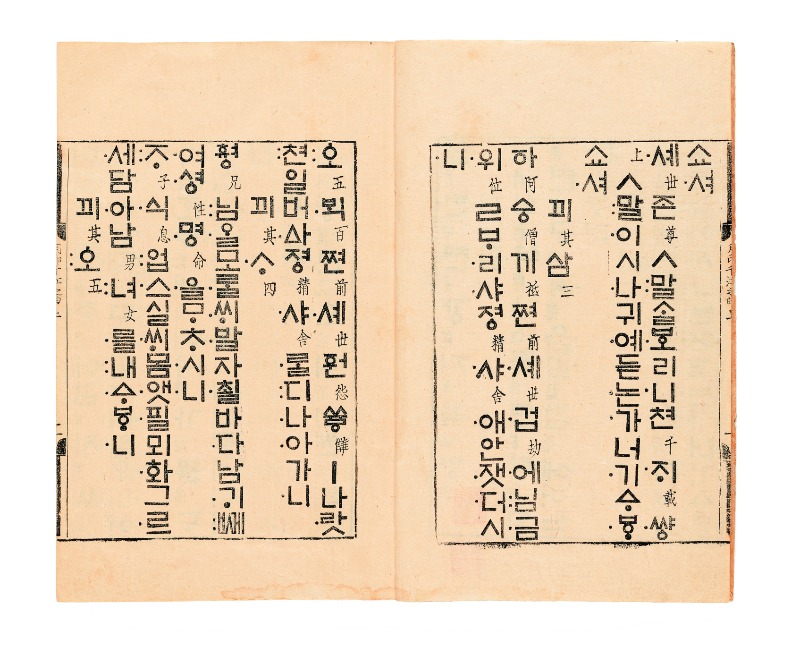 쇼셔
셰世존尊ㅅ말ᄉᆞᆯᄫᅩ리니쳔千ᄌᆡ載썅
上ㅅ말이시나귀예듣논가너기ᅀᆞᄫᆞ
쇼셔
끠其삼三
하阿승僧끼祇쪈前셰世겁劫에님금
위位ㄹᄇᆞ리샤졍精샤舍애안잿더시
니
오五ᄇᆡᆨ百쪈前셰世훤怨쓩讐ㅣ나랏
쳔일버ᅀᅡ졍精샤舍ᄅᆞᆯ디나아가니
끠其ᄉᆞ四
형兄님ᄋᆞᆯ모ᄅᆞᆯᄊᆡ발자쵤바다남ᄀᆡᄢᅦ
여셩性명命을ᄆᆞᄎᆞ시니
ᄌᆞ子식息업스실ᄊᆡ몸앳필뫼화그르
세담아남男녀女를내ᅀᆞᄫᆞ니
끠其오五